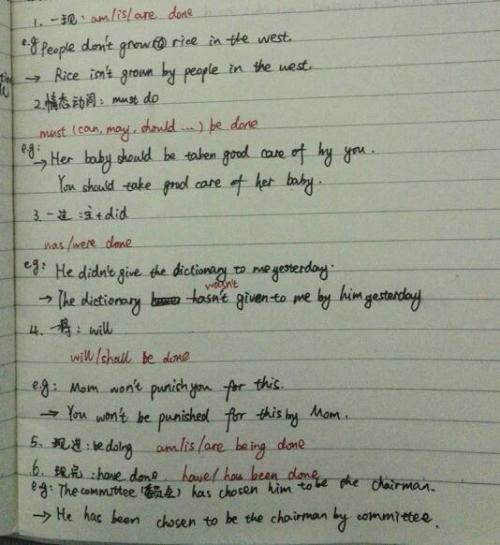 1. 一现: am/is/are done
e.g People don't grow rice in the west.
→ Rice isn't grown by people in the west.
2.情态动词: must do
must (can, may, should ...) be done
e.g:
→ Her baby should be taken good care of by you.
You should take good care of her baby.
3. 一过: 主+did
was/were done
eg: He didn't give the dictionary to me yesterday.
wasn't
→ The dictionary hasn't given to me by him yesterday
4. 一将: will
will/shall be done
e.g: Mom won't punish you for this.
→ You won't be punished for this by Mom.
5. 现进: be doing am/is/are being done
6. 现完: have done have/has been done
eg: The committee (委员会) has chosen him to be the chairman.
→ He has been chosen to be the chairman by committee.